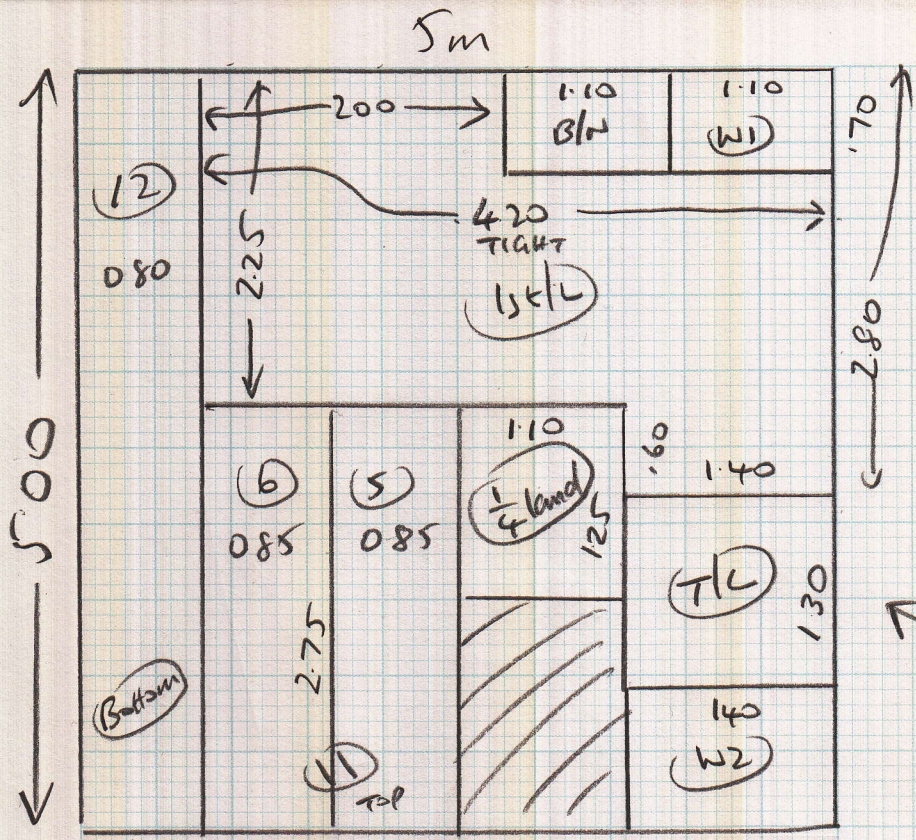 5m
1.10
B/N
1.10
W1
.70
200
12
080
2.25
4.20
TIGHT
1st/L
2.80
5.00
6
085
5
085
1.10
1/4 land
1.25
.60
1.40
T/L
1.30
2.75
Bottom
11
TOP
140
W2